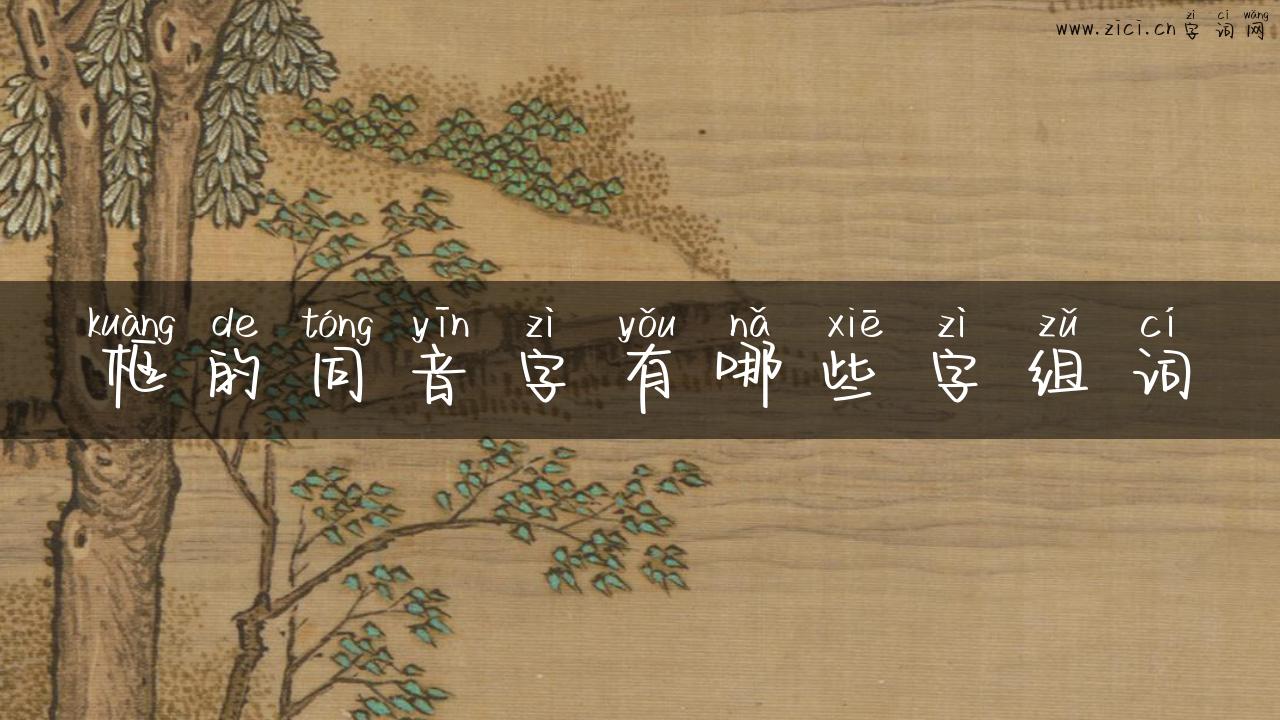 zì cí wǎng
www.zici.cn 字词网
kuàng de tóng yīn zì yǒu nǎ xiē zì zǔ cí
框的同音字有哪些字组词